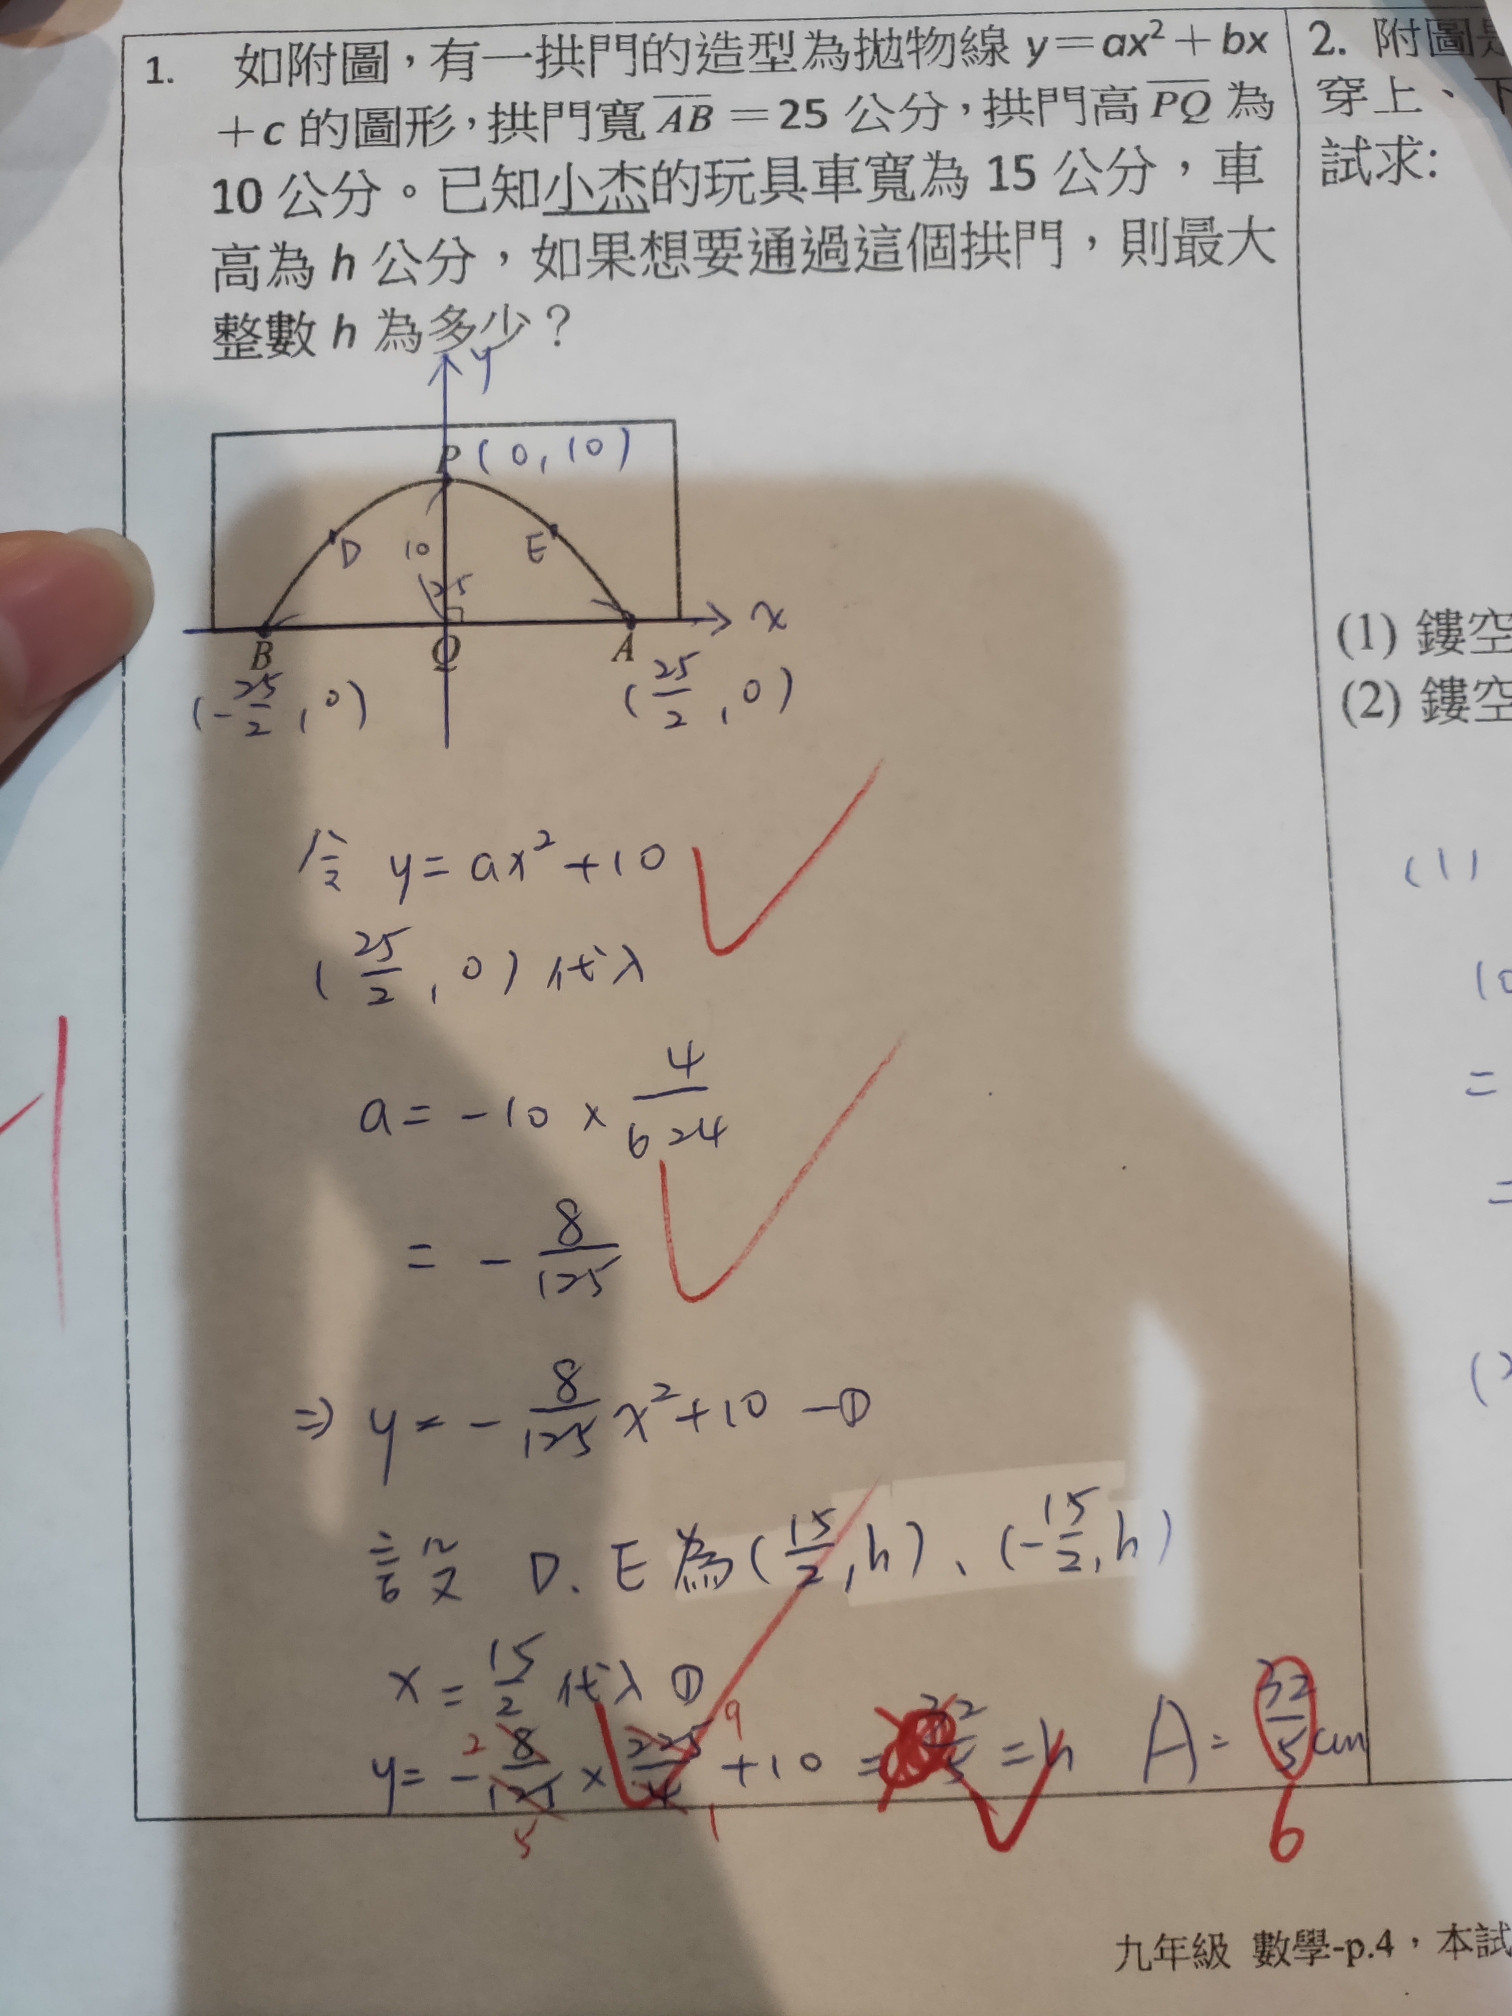 1. 如附圖,有一拱門的造型為拋物線 y=ax²+bx
+c 的圖形,拱門寬 AB=25 公分,拱門高 PQ 為
10 公分。已知小杰的玩具車寬為 15 公分,車
高為 h 公分,如果想要通過這個拱門,則最大
整數 h 為多少?
y
P (0,10)
D 10 E
25
x
B Q A
(-25/2, 0) (25/2, 0)
令 y=ax²+10
(25/2, 0) 代入
a = -10 × 4/624
= -8/125
⇒ y = -8/125 x²+10 -①
設 D、E 為 (15/2, h)、(-15/2, h)
x = 15/2 代入 ①
y = -8/125 × 225/4 + 10 = 32/5 = h A = 32/5 cm
2 9
5 1
6
2. 附圖是
穿上、下
試求:
(1) 鏤空
(2) 鏤空
(1)
10
=
=
(2
九年級 數學-p.4,本試